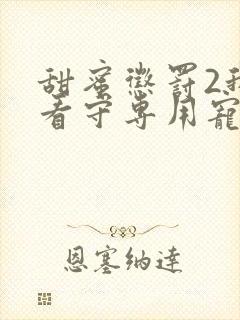 甜蜜懲罰2我
看守專用寵
恩塞納達